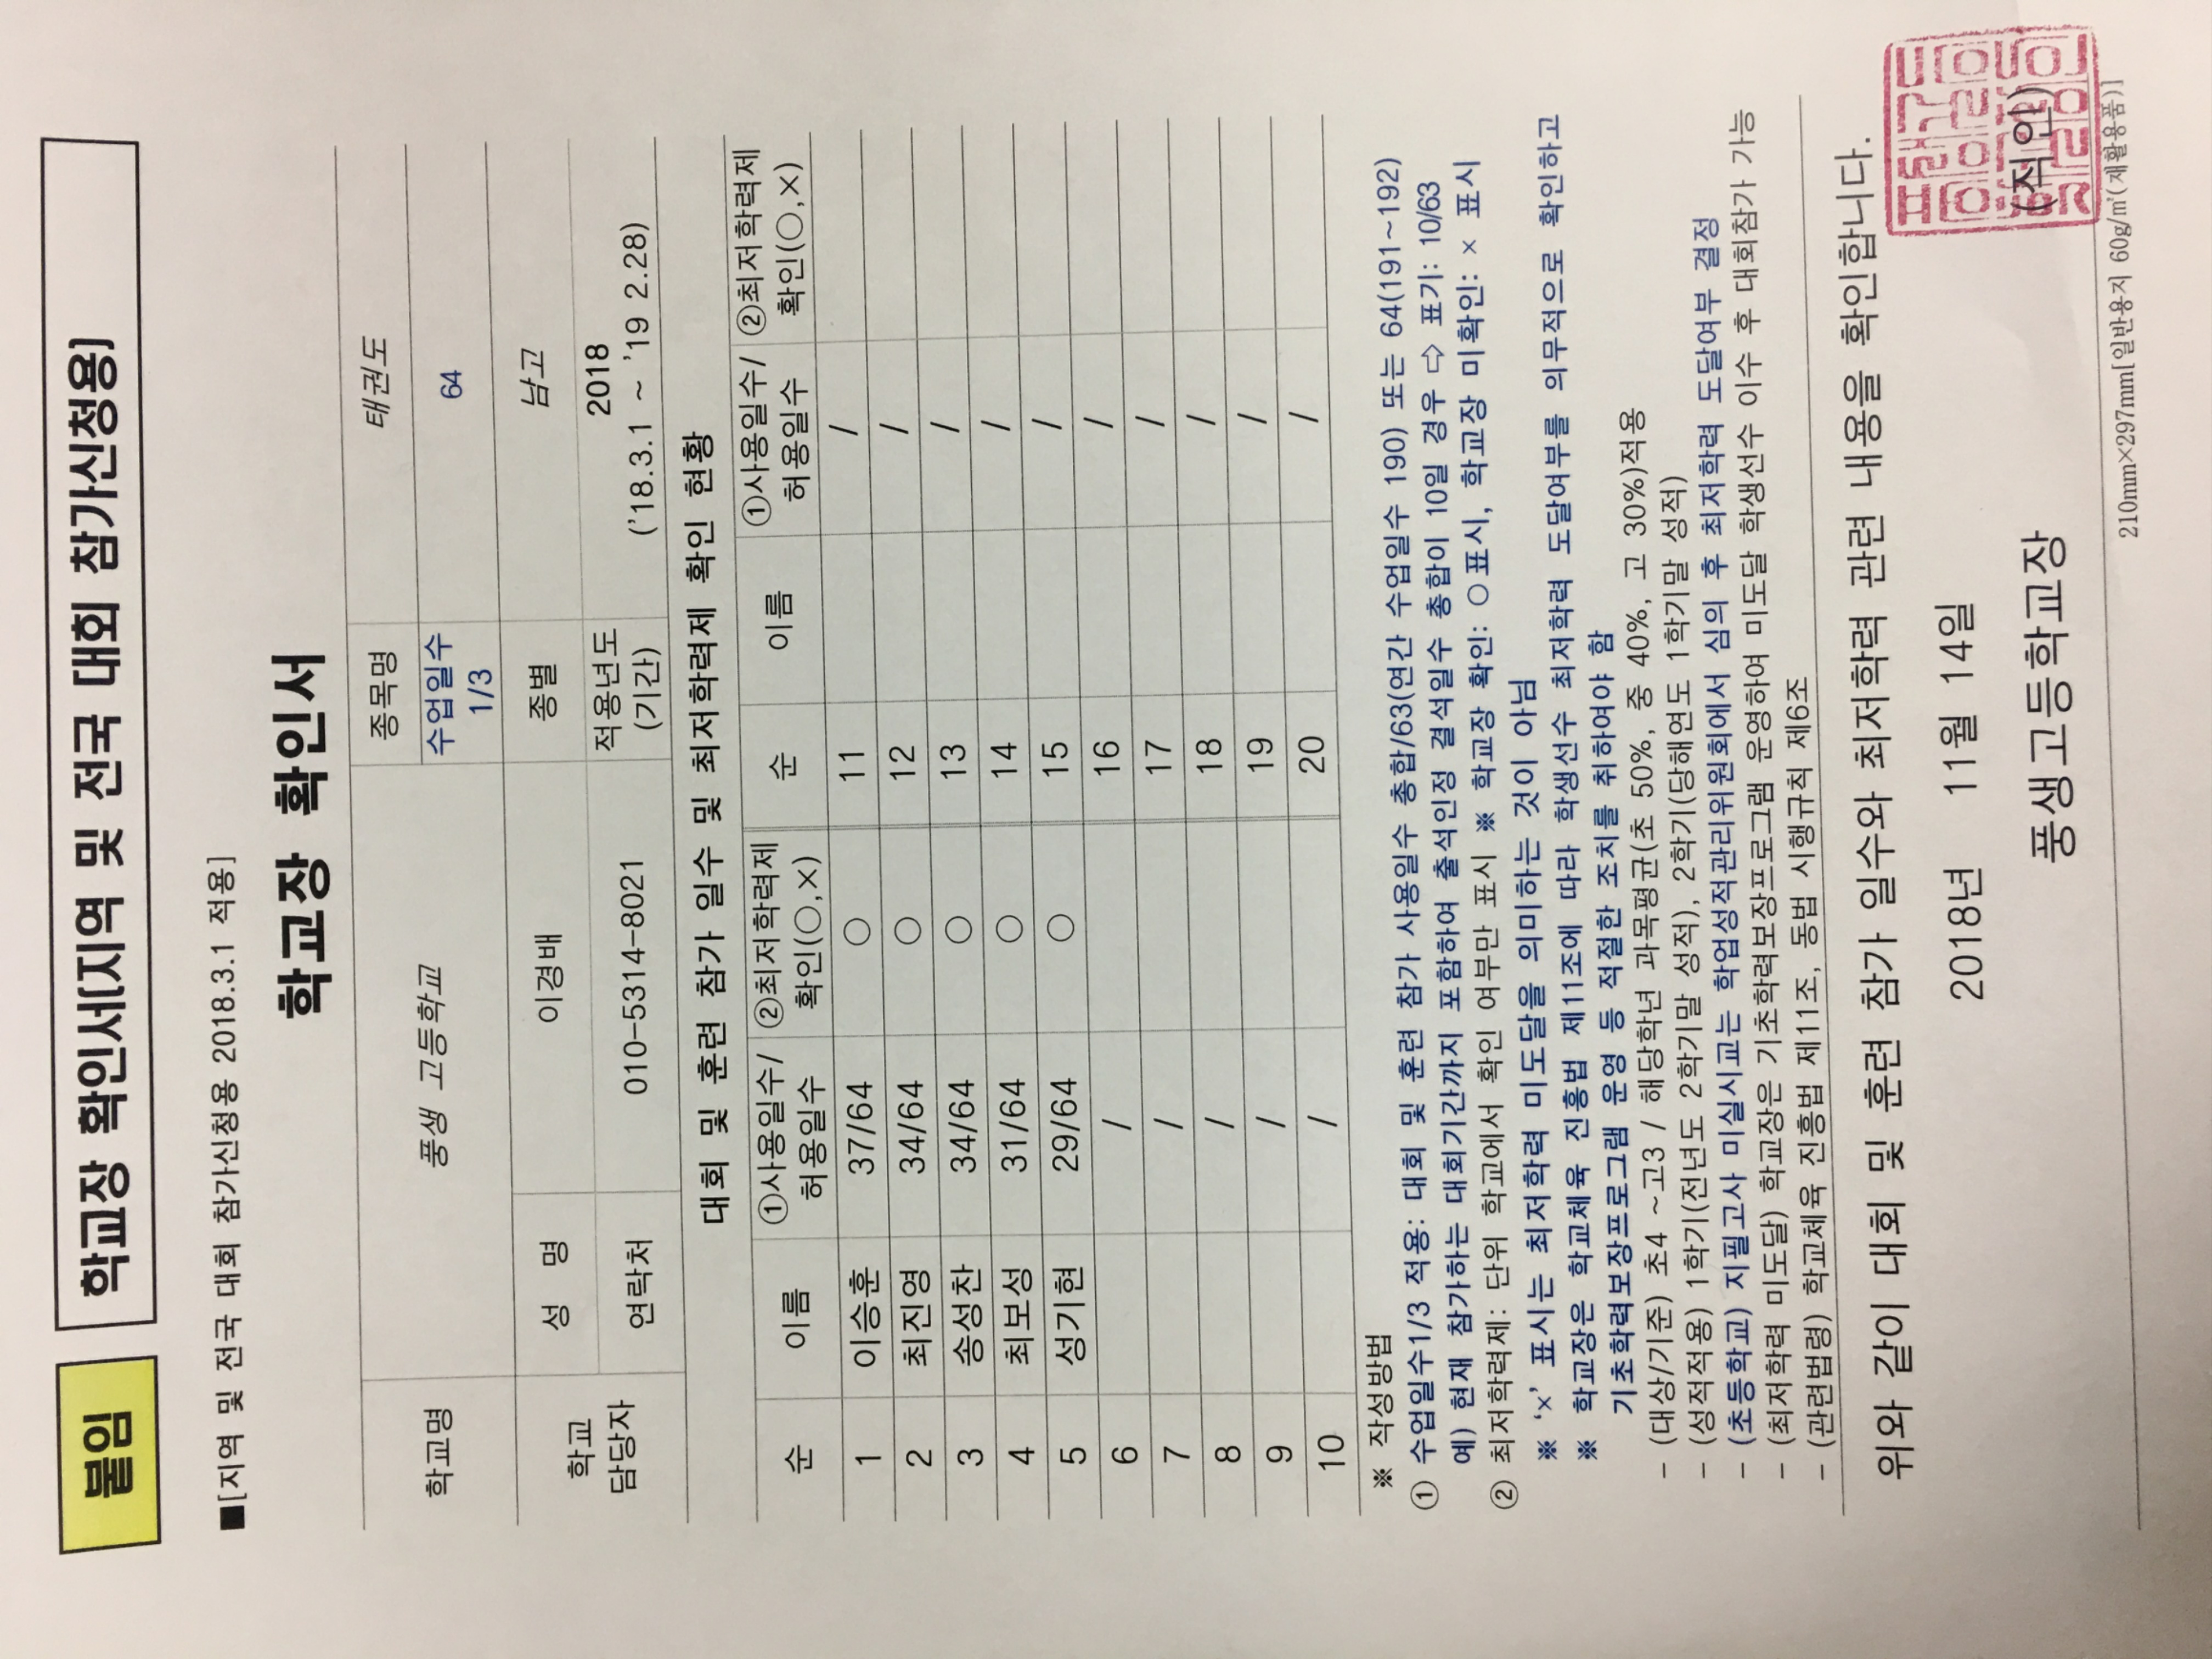 붙임 학교장 확인서[지역 및 전국 대회 참가신청용]
■[지역 및 전국 대회 참가신청용 2018.3.1 적용]
학교장 확인서
학교명 풍생 고등학교 종목명 태권도
수업일수 1/3 64
학교 담당자 성 명 이경배 종별 남고
연락처 010-5314-8021 적용년도 (기간) 2018 ('18.3.1 ~ '19 2.28)
대회 및 훈련 참가 일수 및 최저학력제 확인 현황
순 이름 ①사용일수/허용일수 ②최저학력제 확인(○,×) 순 이름 ①사용일수/허용일수 ②최저학력제 확인(○,×)
1 이승훈 37/64 ○ 11 /
2 최진영 34/64 ○ 12 /
3 송성찬 34/64 ○ 13 /
4 최보성 31/64 ○ 14 /
5 성기현 29/64 ○ 15 /
6 / 16 /
7 / 17 /
8 / 18 /
9 / 19 /
10 / 20 /
※ 작성방법
① 수업일수1/3 적용: 대회 및 훈련 참가 사용일수 총합/63(연간 수업일수 190) 또는 64(191~192)
예) 현재 참가하는 대회기간까지 포함하여 출석인정 결석일수 총합이 10일 경우 ⇨ 표기: 10/63
② 최저학력제: 단위 학교에서 확인 여부만 표시 ※ 학교장 확인: ○표시, 학교장 미확인: × 표시
※ '×' 표시는 최저학력 미도달을 의미하는 것이 아님
※ 학교장은 학교체육 진흥법 제11조에 따라 학생선수 최저학력 도달여부를 의무적으로 확인하고
기초학력보장프로그램 운영 등 적절한 조치를 취하여야 함
- (대상/기준) 초4 ~고3 / 해당학년 과목평균(초 50%, 중 40%, 고 30%)적용
- (성적적용) 1학기(전년도 2학기말 성적), 2학기(당해연도 1학기말 성적)
- (초등학교) 지필고사 미실시교는 학업성적관리위원회에서 심의 후 최저학력 도달여부 결정
- (최저학력 미도달) 학교장은 기초학력보장프로그램 운영하여 미도달 학생선수 이수 후 대회참가 가능
- (관련법령) 학교체육 진흥법 제11조, 동법 시행규칙 제6조
위와 같이 대회 및 훈련 참가 일수와 최저학력 관련 내용을 확인합니다.
2018년 11월 14일
풍생고등학교장 (직인)
210mm×297mm[일반용지 60g/㎡(재활용품)]